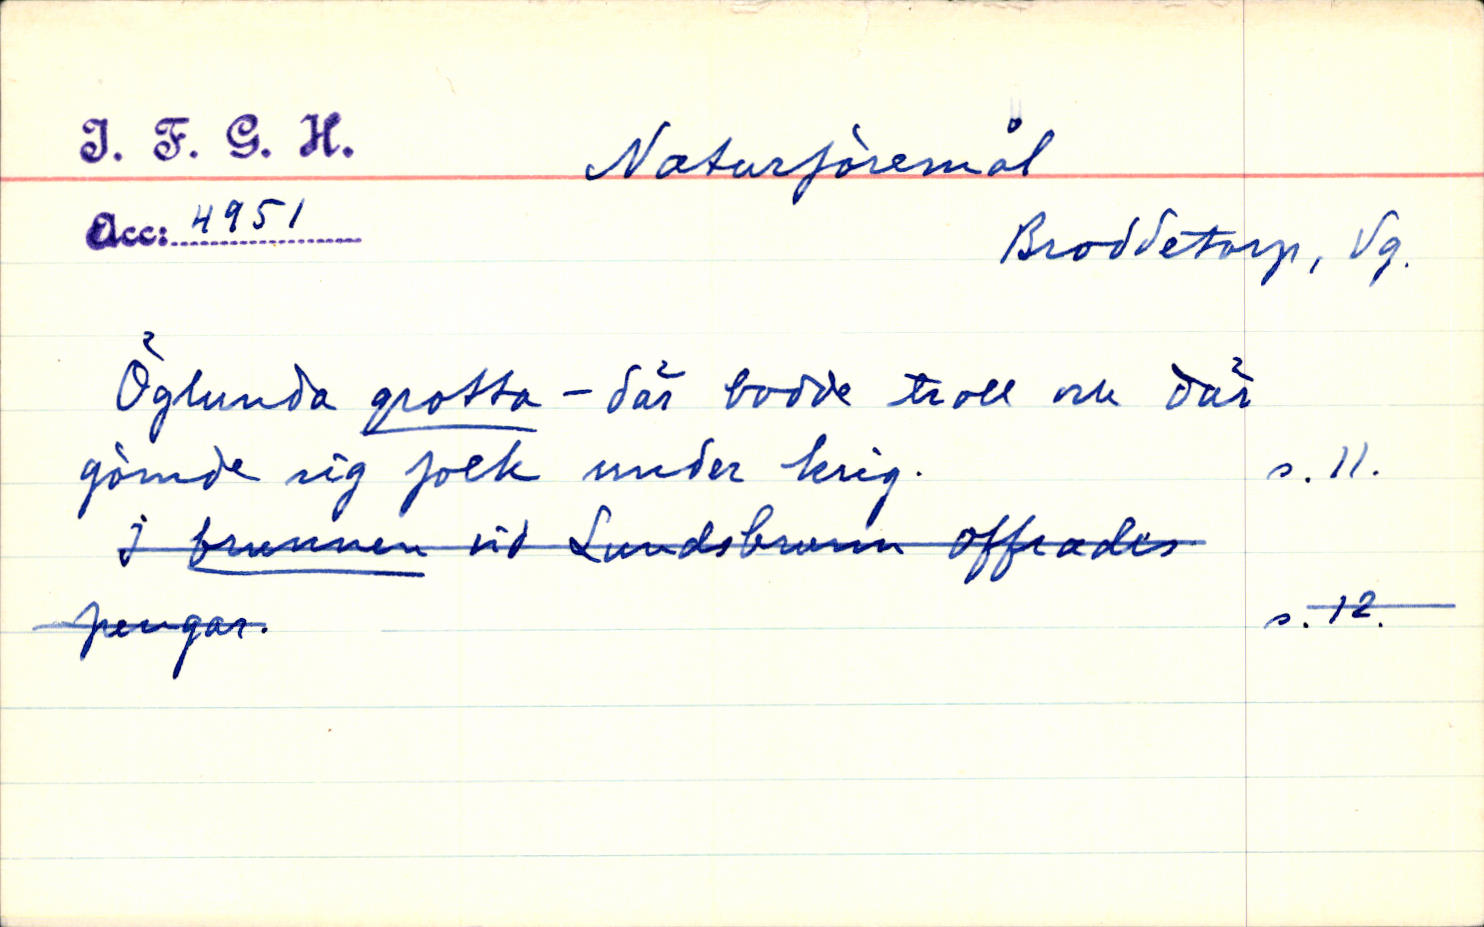 I. F. G. H.
Naturföremål
Acc: 4951
Broddetorp, Vg.
Öglunda grotta - där bodde troll och där
gömde sig folk under krig. s. 11.
I brunnen vid Lundsbrunn offrades
pengar. s. 12.